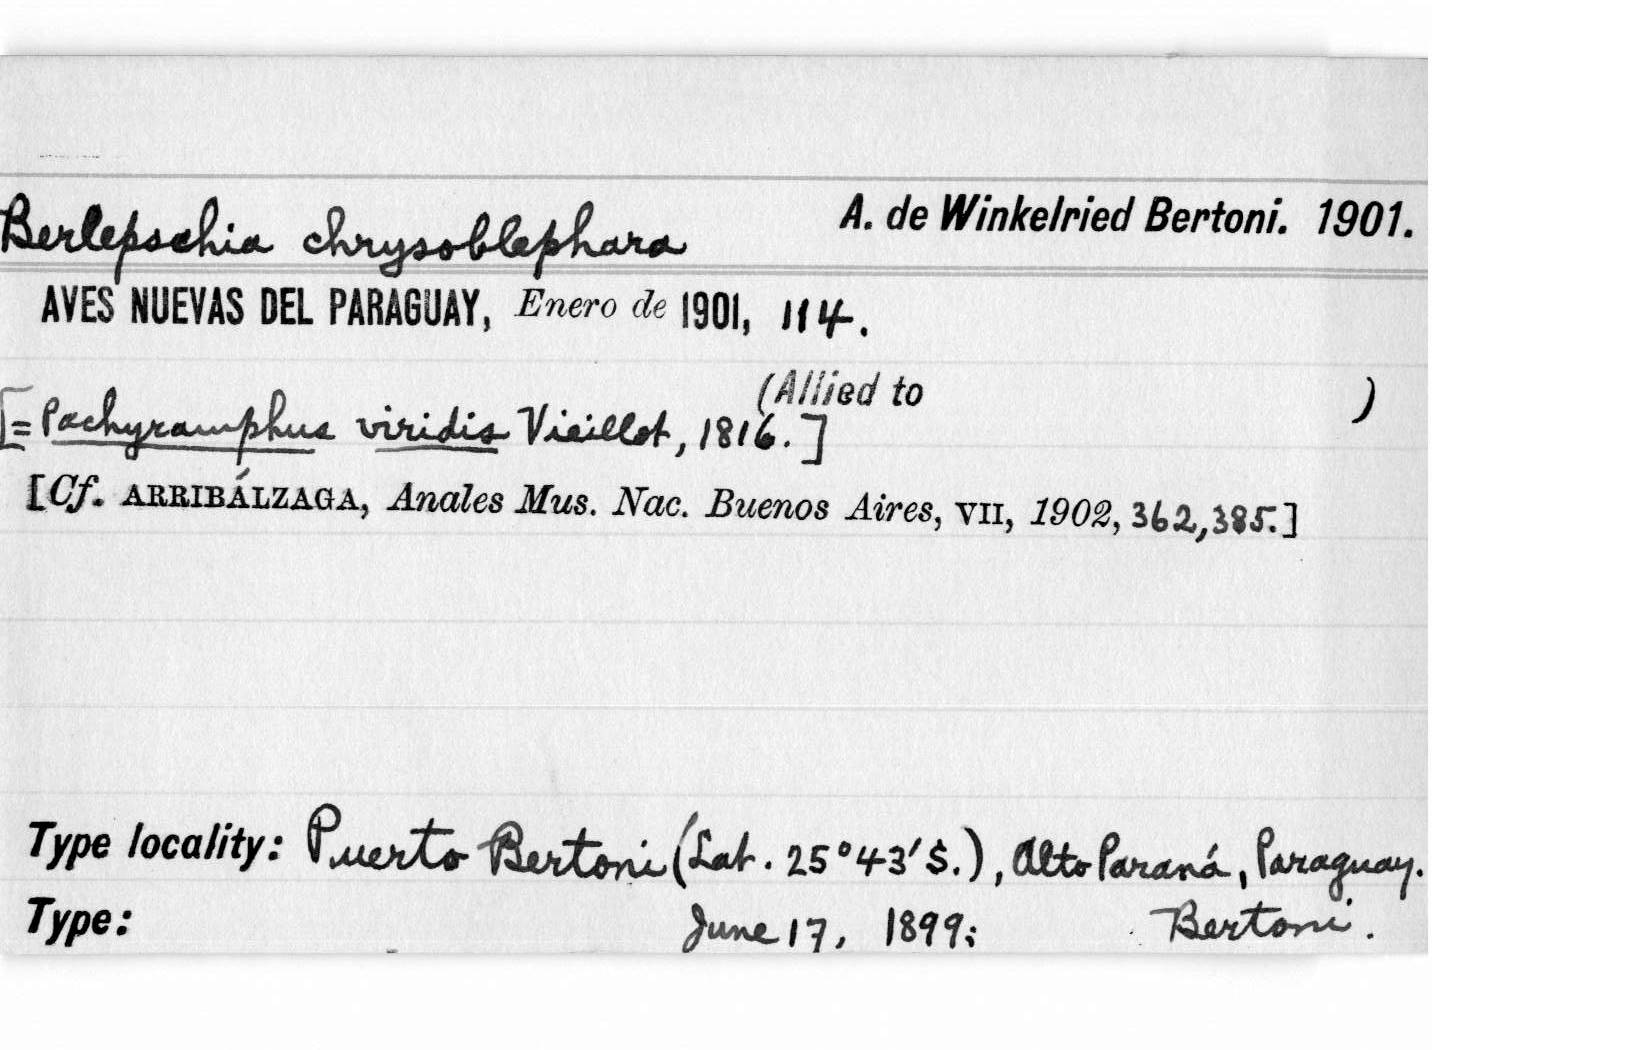 Berlepschia chrysoblephara A. de Winkelried Bertoni. 1901.
AVES NUEVAS DEL PARAGUAY, Enero de 1901, 114.
(Allied to )
[= Pachyramphus viridis Vieillot, 1816.]
[Cf. ARRIBÁLZAGA, Anales Mus. Nac. Buenos Aires, VII, 1902, 362, 385.]
Type locality: Puerto Bertoni (Lat. 25°43' S.), Alto Paraná, Paraguay.
Type: June 17, 1899; Bertoni.